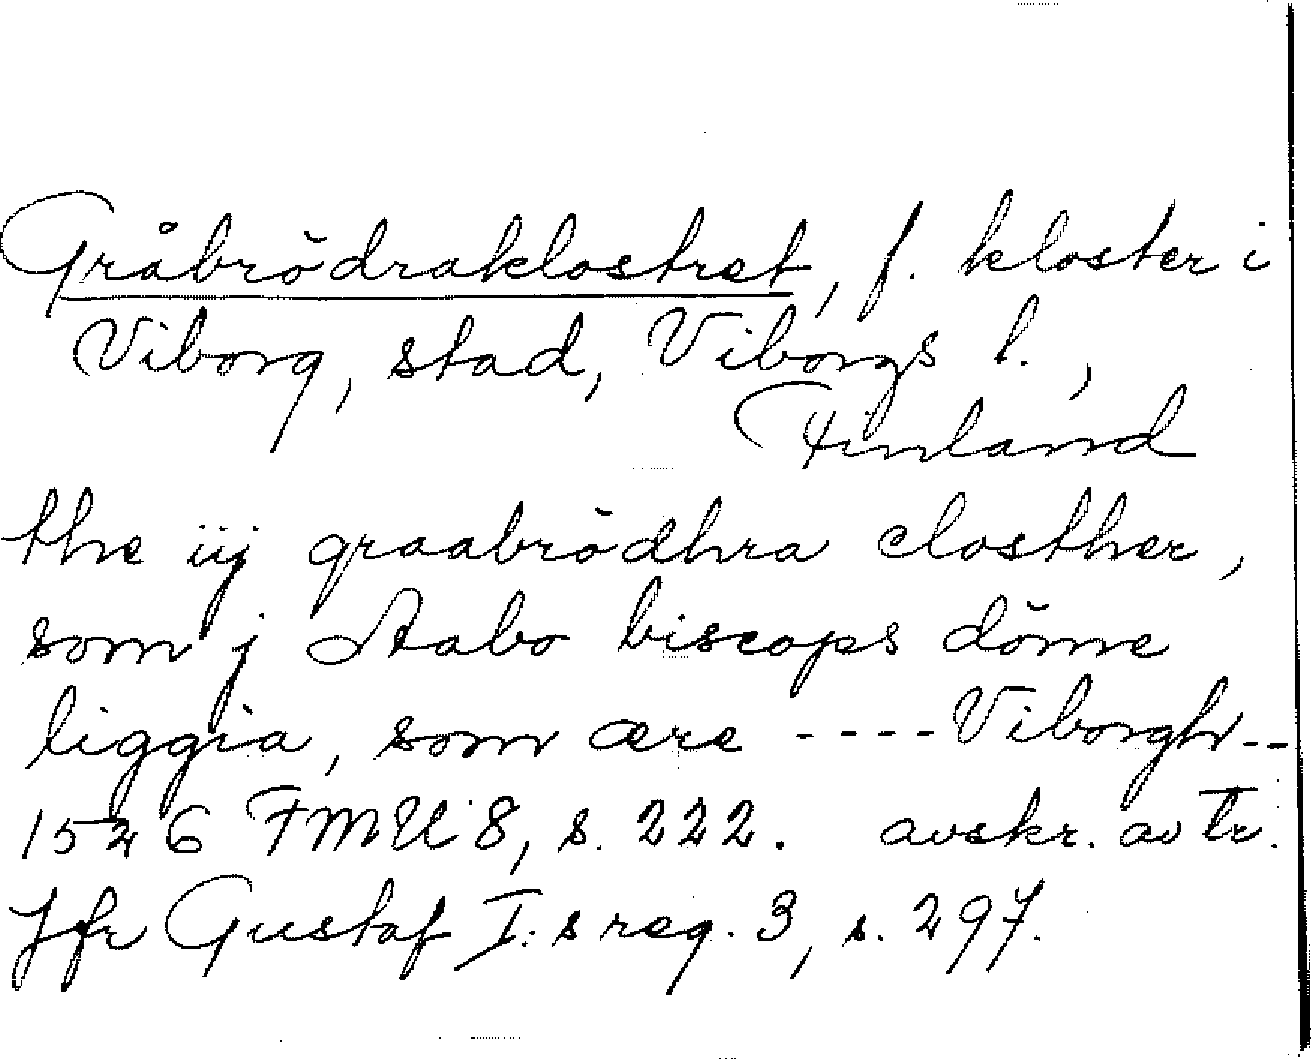 Gråbrödraklostret, f. kloster i
Viborg, stad, Viborgs l.,
Finland
the iij graabrödhra closther,
som j Aabo biscops döme
liggia, som ære ---- Viborgh --
1526 FMU 8, s. 222. avskr. av tr.
Jfr Gustaf I:s reg. 3, s. 297.